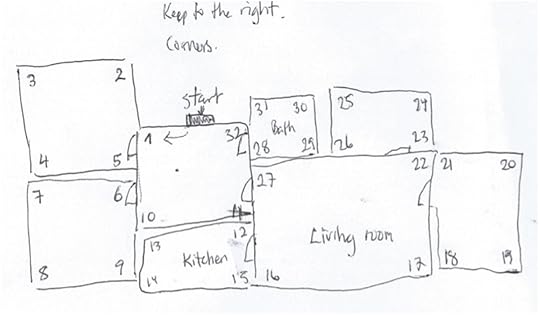 Keep to the right.
Corners.
start
3 2
4 5
1 32
31 30
Bath
28 29
25 24
26 23
7 6
8 9
10
27
22 21 20
13 12
Kitchen
14 15
Living room
16 17
18 19